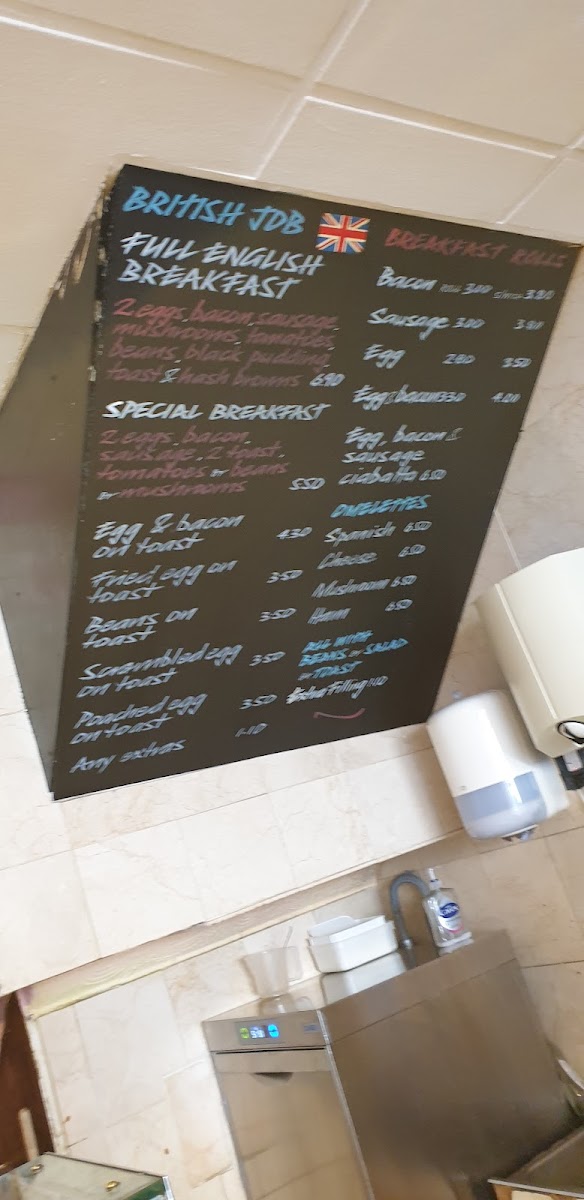 BRITISH JOB
FULL ENGLISH
BREAKFAST
2 eggs, bacon, sausage,
mushrooms, tomatoes,
beans, black pudding,
toast & hash browns 6.90
SPECIAL BREAKFAST
2 eggs, bacon,
sausage, 2 toast,
tomatoes or beans
or mushrooms 5.50
Egg & bacon
on toast 4.30
Fried egg on
toast 3.50
Beans on
toast 3.50
Scrambled egg
on toast 3.50
Poached egg
on toast 3.50
Any extras 1.10
BREAKFAST ROLLS
Bacon 3.00 3.80
Sausage 3.00 3.80
Egg 2.80 3.50
Egg & bacon 3.30 4.00
Egg, bacon &
sausage
ciabatta 6.50
OMELETTES
Spanish 6.50
Cheese 6.50
Mushroom 6.50
Ham 6.50
ALL WITH
BEANS or SALAD
or TOAST
Extra Filling 1.10